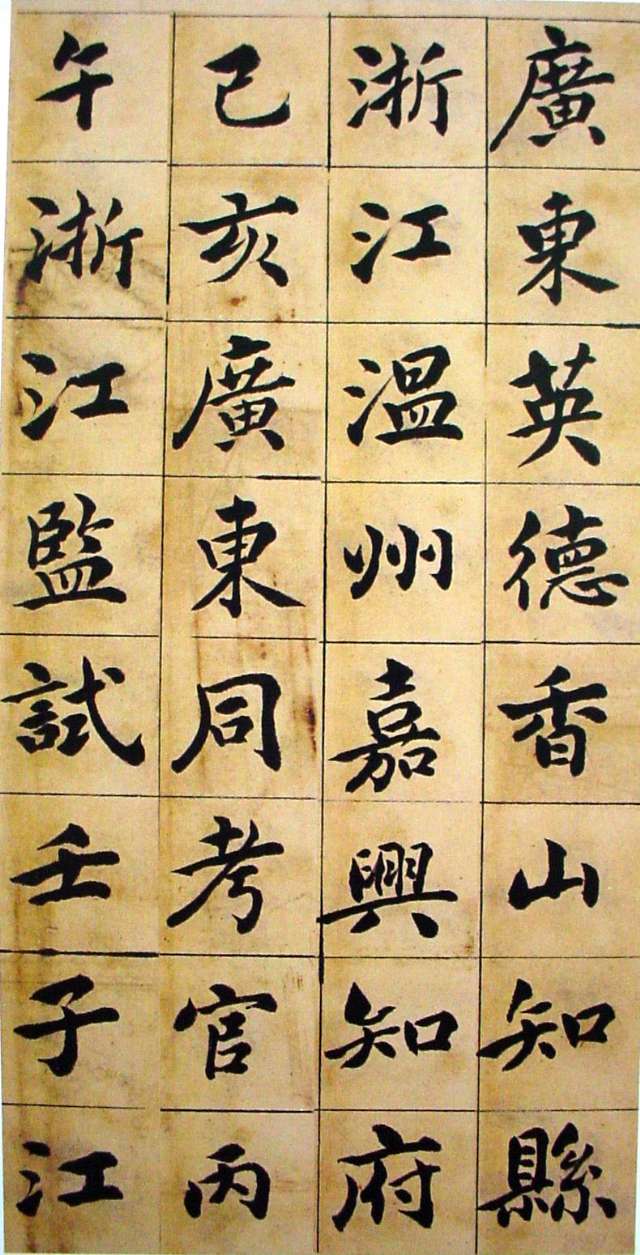 廣東英德香山知縣
浙江溫州嘉興知府
己亥廣東同考官丙
午浙江監試壬子江